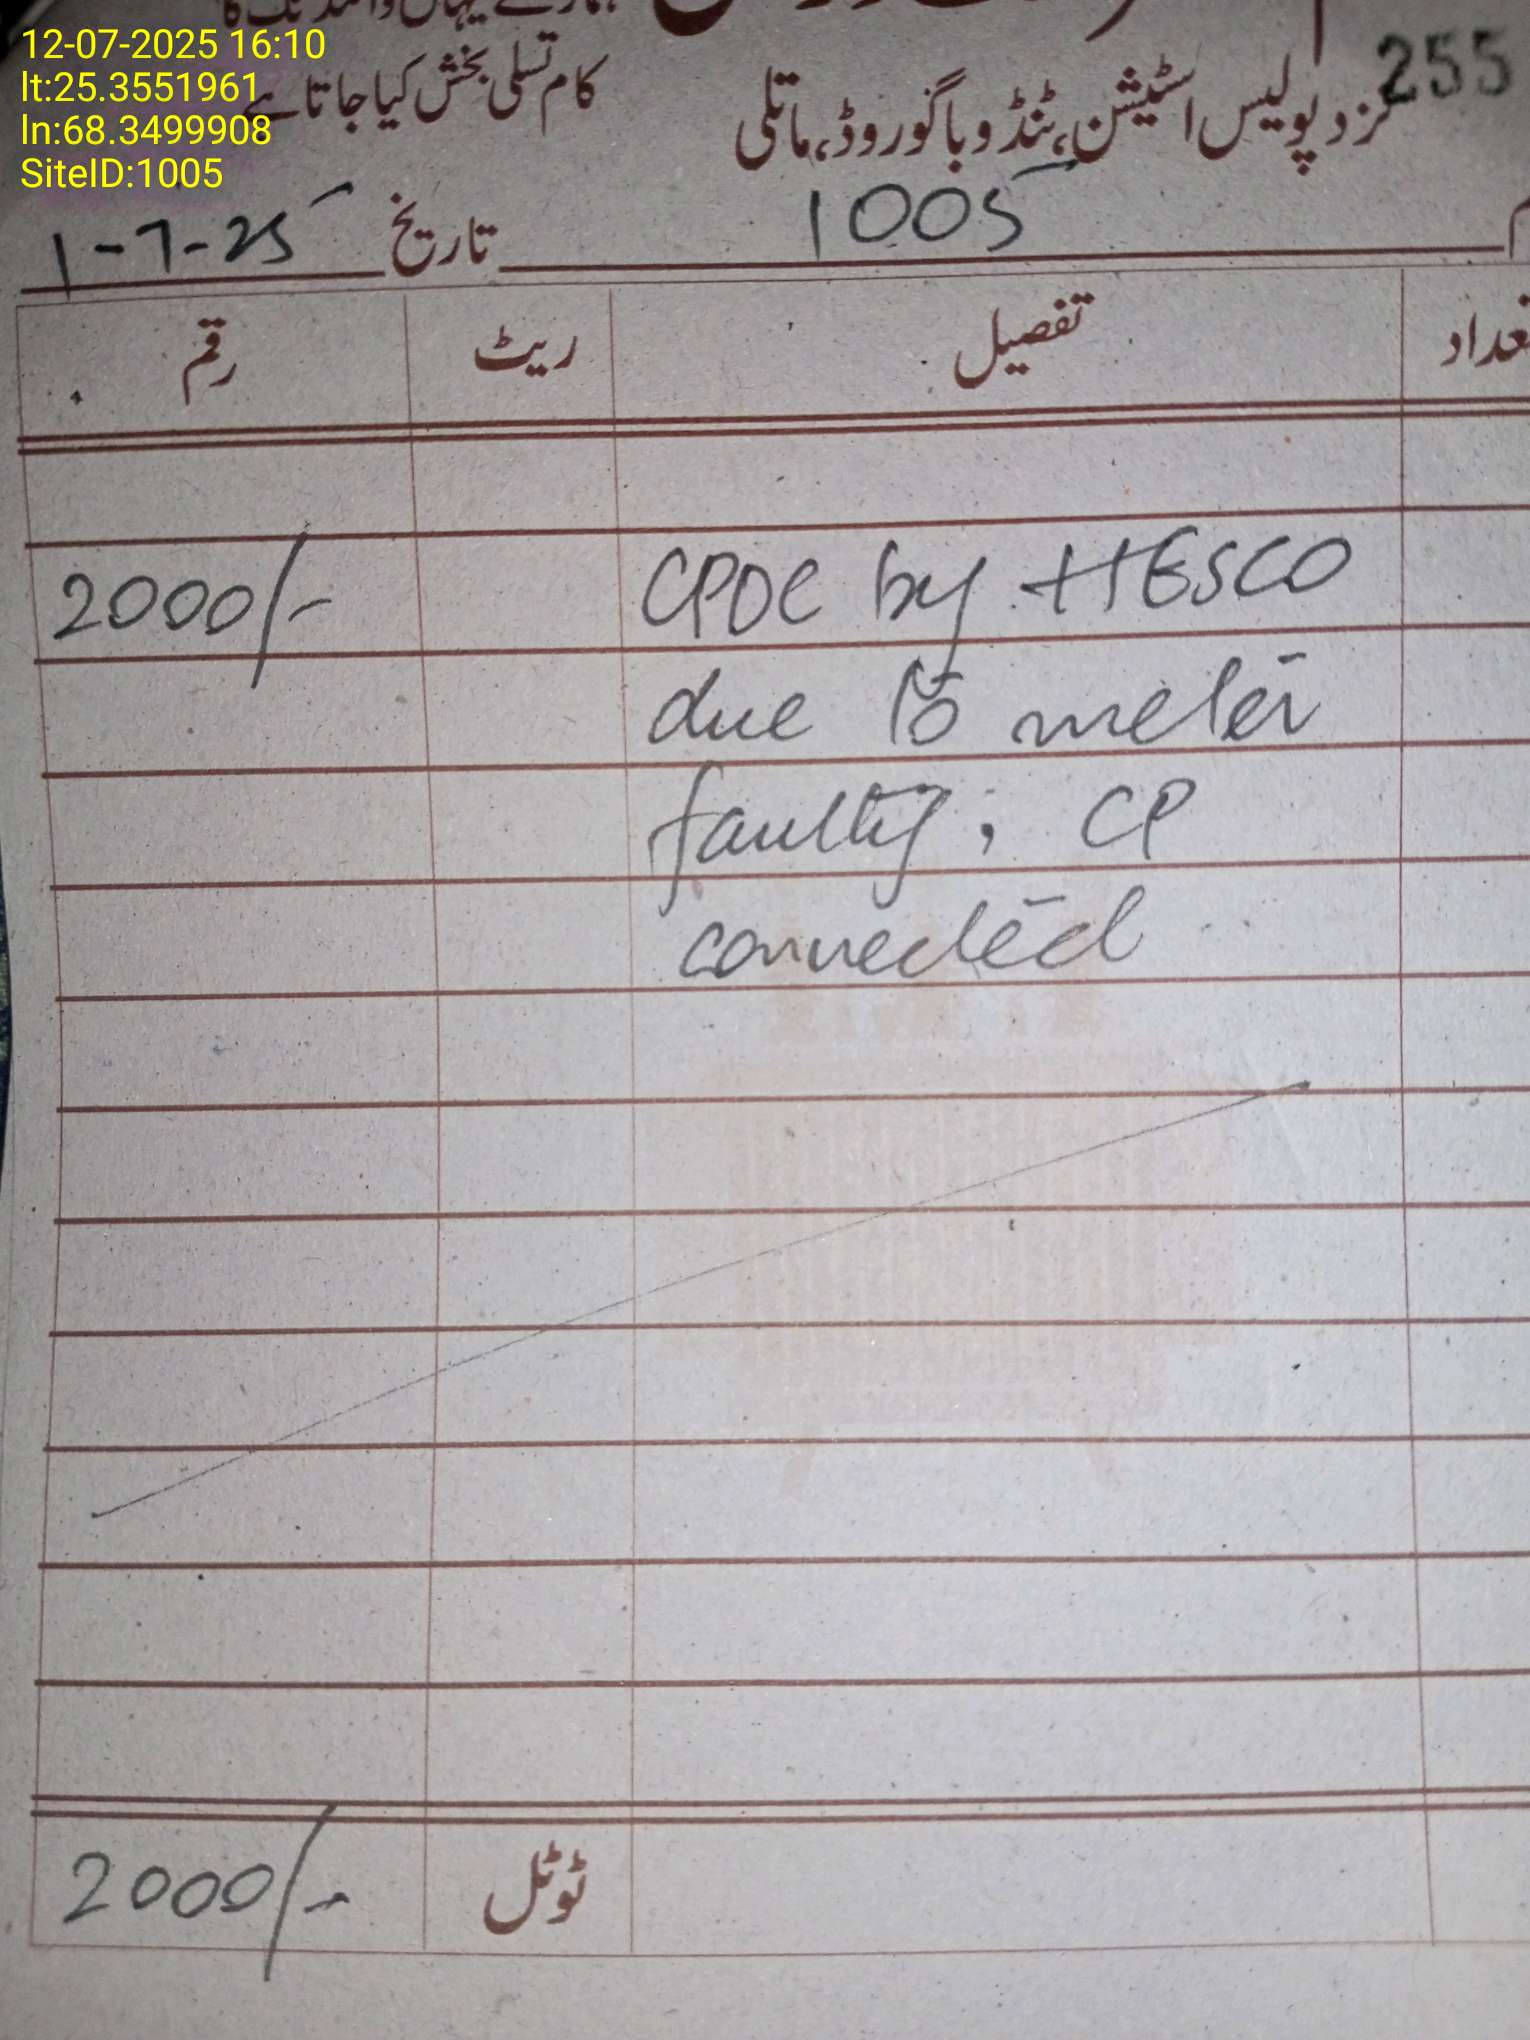 12-07-2025 16:10
lt:25.3551961
ln:68.3499908
SiteID:1005
255
کام تسلی بخش کیا جاتا ہے
نزد پولیس اسٹیشن، ٹنڈو باگو روڈ، ماتلی
1005
تاریخ 1-7-25
تعداد تفصیل ریٹ رقم
CPDC by HESCO 2000/-
due to meter
faulty; CP
connected
ٹوٹل 2000/-